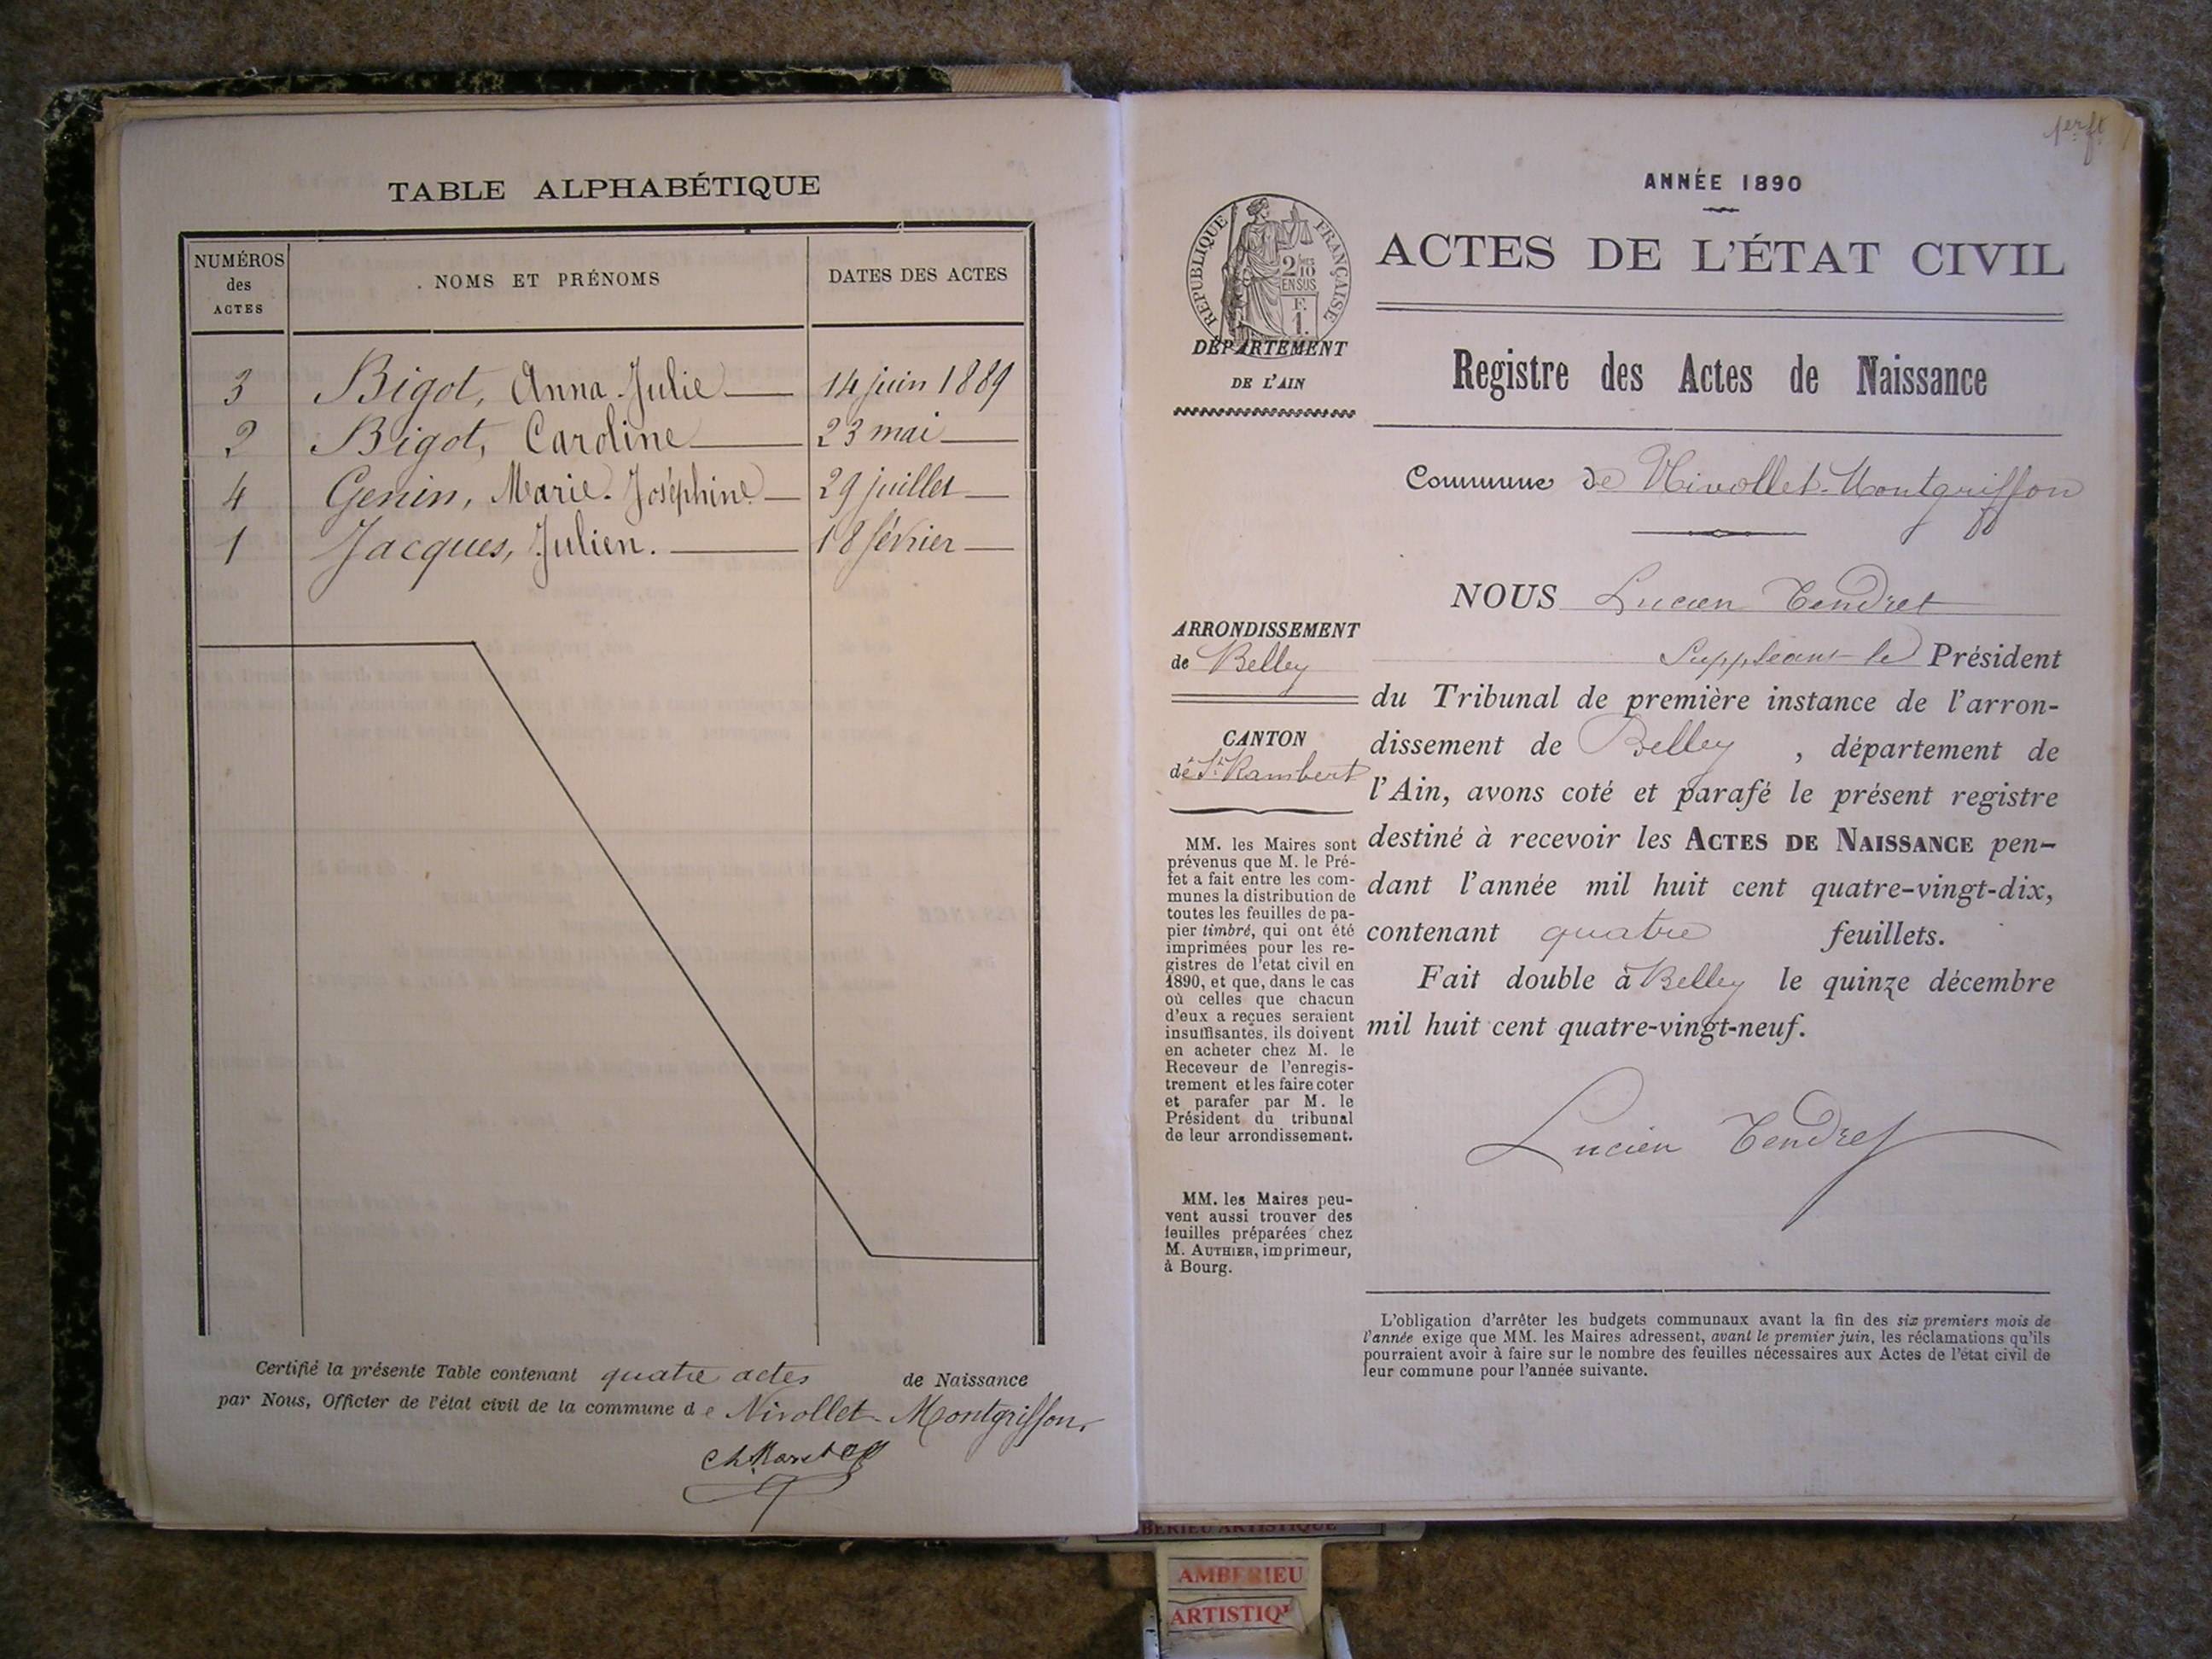 TABLE ALPHABÉTIQUE
NUMÉROS
des
ACTES
NOMS ET PRÉNOMS
DATES DES ACTES
3 Bigot, Anna Julie 14 juin 1889
2 Bigot, Caroline 23 mai
4 Genin, Marie-Joséphine 29 juillet
1 Jacques, Julien. 18 février
Certifié la présente Table contenant quatre actes de Naissance
par Nous, Officier de l'état civil de la commune de Nivollet-Montgriffon
1er ft
ANNÉE 1890
ACTES DE L'ÉTAT CIVIL
RÉPUBLIQUE FRANÇAISE
2 MES
10
EN SUS
F.
1.
DÉPARTEMENT
DE L'AIN
Registre des Actes de Naissance
Commune de Nivollet-Montgriffon
NOUS Lucien Tendret
Suppléant le Président
du Tribunal de première instance de l'arron-
dissement de Belley , département de
l'Ain, avons coté et parafé le présent registre
destiné à recevoir les ACTES DE NAISSANCE pen-
dant l'année mil huit cent quatre-vingt-dix,
contenant quatre feuillets.
Fait double à Belley le quinze décembre
mil huit cent quatre-vingt-neuf.
Lucien Tendret
ARRONDISSEMENT
de Belley
CANTON
de St Rambert
MM. les Maires sont
prévenus que M. le Pré-
fet a fait entre les com-
munes la distribution de
toutes les feuilles de pa-
pier timbré, qui ont été
imprimées pour les re-
gistres de l'etat civil en
1890, et que, dans le cas
où celles que chacun
d'eux a reçues seraient
insuffisantes, ils doivent
en acheter chez M. le
Receveur de l'enregis-
trement et les faire coter
et parafer par M. le
Président du tribunal
de leur arrondissement.
MM. les Maires peu-
vent aussi trouver des
feuilles préparées chez
M. AUTHIER, imprimeur,
à Bourg.
L'obligation d'arrêter les budgets communaux avant la fin des six premiers mois de
l'année exige que MM. les Maires adressent, avant le premier juin, les réclamations qu'ils
pourraient avoir à faire sur le nombre des feuilles nécessaires aux Actes de l'état civil de
leur commune pour l'année suivante.
AMBERIEU
ARTISTIQ